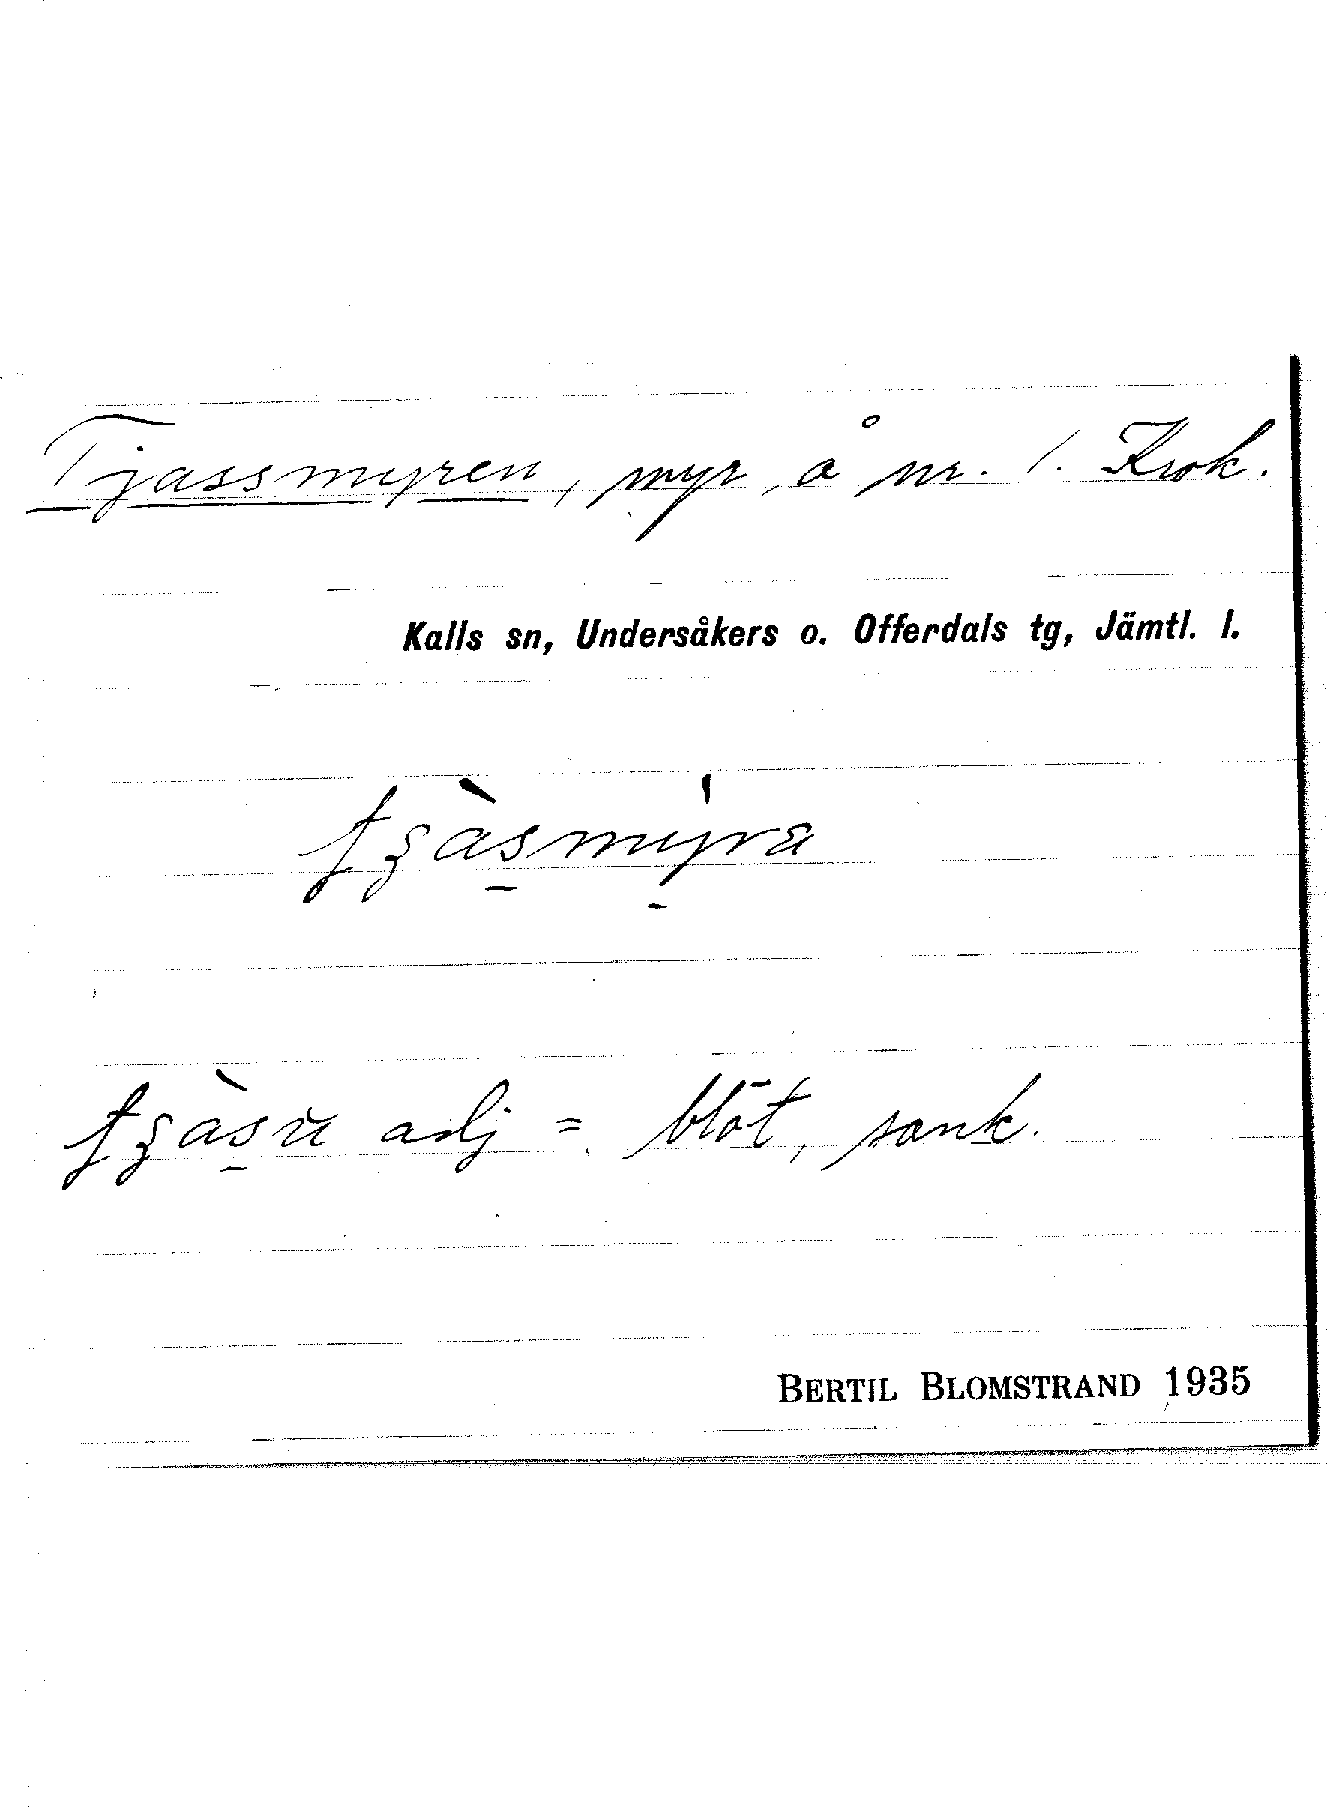 Tjassmyren, myr, å nr. 1. Krok.
Kalls sn, Undersåkers o. Offerdals tg, Jämtl. l.
adj = blöt, sank.
BERTIL BLOMSTRAND 1935